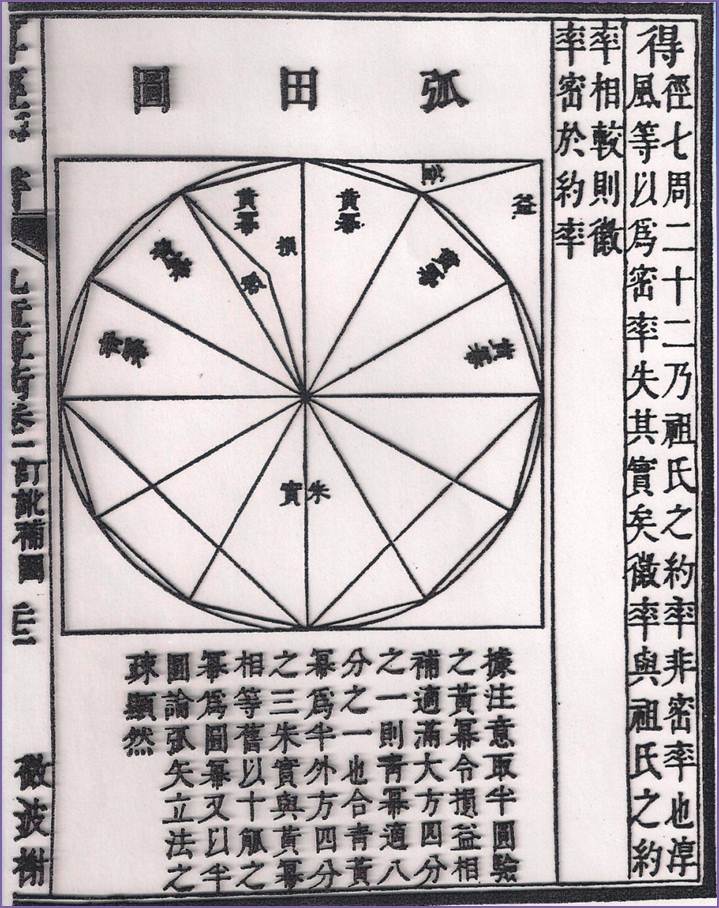 得
徑七周二十二乃祖氏之約率非密率也淳
風等以爲密率失其實矣徽率與祖氏之約
率相較則徽
率密於約率
弧田圖
益
黃冪
黃冪
損
朱實
據注意取半圓驗
之黃冪令損益相
補適滿大方四分
之一則青冪適八
分之一也合青黃
冪爲半外方四分
之三朱實與黃冪
相等舊以十觚之
冪爲圓冪又以半
圓論弧矢立法之
疎顯然
卷一訂訛補圖
微波榭